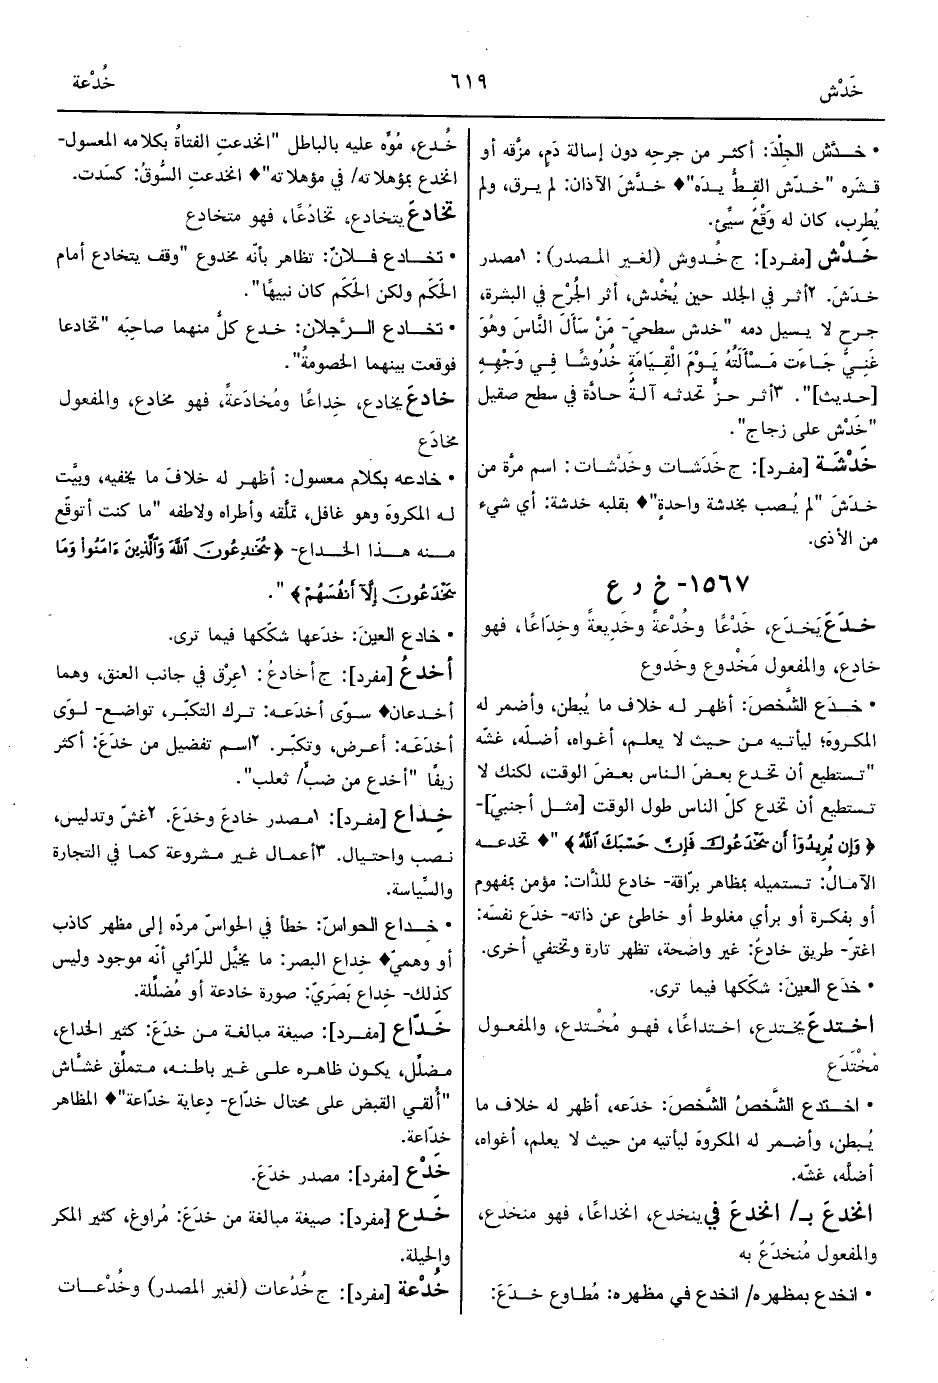 خَدْش
٦١٩
خُدْعة
• خـدَّش الجِلْدَ: أكثر من جرحه دون إسالة دَمٍ، مزَّقه أو
قشَره "خدّش القِطُّ يدَه"♦ خدَّشَ الآذان: لم يرق، ولم
يُطرِب، كان له وَقْعٌ سيِّئ.
خَدْش [مفرد]: ج خُدوش (لغير المصدر): ١مصدر
خدَشَ. ٢أثر في الجلد حين يُخْدش، أثر الجُرْح في البشرة،
جرح لا يسيل دمه "خدش سطحيّ- مَنْ سَأَلَ النَّاسَ وَهُوَ
غَنِيٌّ جَاءَت مَسْأَلَتُهُ يَوْمَ الْقِيَامَةِ خُدُوشًا فِي وَجْهِهِ
[حديث]". ٣أثر حزٍّ تحدثه آلةٌ حادَّة في سطح صقيل
"خَدْش على زجاج".
خَدْشَة [مفرد]: ج خَدَشات وخَدْشات: اسم مرَّة من
خدَشَ "لم يُصب بخدشة واحدةٍ"♦ بقلبه خدشة: أي شيء
من الأذى.
١٥٦٧- خ د ع
خـدَعَ يَخدَع، خَدْعًا وخُدْعةً وخَديعةً وخِدَاعًا، فهو
خادع، والمفعول مَخْدوع وخَدوع
• خـدَع الشَّخصَ: أظهر لـه خلاف ما يُبطن، وأضمر له
المكروهَ؛ ليأتيه مـن حيث لا يعلم، أغواه، أضلّه، غشّه
"تستطيع أن تخدع بعضَ الناس بعضَ الوقت، لكنك لا
تستطيع أن تخدع كلّ الناس طول الوقت [مثل أجنبيّ]-
﴿وَإِن يُرِيدُوٓا۟ أَن يَخْدَعُوكَ فَإِنَّ حَسْبَكَ ٱللَّهُ﴾ "♦ تخدعـه
الآمالُ: تستميله بمظاهر برَّاقة- خادع للذَّات: مؤمن بمفهوم
أو بفكرة أو برأي مغلوط أو خاطئ عن ذاته- خدَع نفسَه:
اغترّ- طريق خادعُ: غير واضحة، تظهر تارة وتختفي أخرى.
• خدَع العينَ: شكّكها فيما ترى.
اختدعَ يختدع، اختداعًا، فهـو مُخْتدع، والمفعول
مُخْتَدَع
• اختدع الشَّخصُ الشَّخصَ: خدَعه، أظهر له خلاف ما
يُبطن، وأضمر له المكروهَ ليأتيه من حيث لا يعلم، أغواه،
أضلَّه، غشّه.
انخدعَ بـ/ انخدعَ في ينخدع، انخداعًا، فهو منخدع،
والمفعول مُنخدَعٌ به
• انخدع بمظهره/ انخدع في مظهره: مُطاوع خـدَعَ:
خُدع، مُوِّه عليه بالباطل "انخدعتِ الفتاةُ بكلامه المعسول-
انخدع بمؤهلاته/ في مؤهلاته"♦ انخدعتِ السُّوقُ: كسَدت.
تخادعَ يتخادع، تخادُعًا، فهو متخادع
• تخـادع فـلانٌ: تظاهر بأنّه مخدوع "وقف يتخادع أمام
الحَكَم ولكن الحَكَم كان نبيهًا".
• تخـادع الـرَّجلان: خدع كلٌّ منهما صاحبَه "تخادعا
فوقعت بينهما الخصومةُ".
خادعَ يخادع، خِداعًا ومُخادَعةً، فهو مخادِع، والمفعول
مخادَع
• خادعه بكلام معسول: أظهر له خلافَ ما يخفيه، وبيَّت
لـه المكروهَ وهو غافل، تملَّقه وأطراه ولاطفه "ما كنت أتوقَّع
مـنه هـذا الخـداع- ﴿يُخَٰدِعُونَ ٱللَّهَ وَٱلَّذِينَ ءَامَنُوا۟ وَمَا
يَخْدَعُونَ إِلَّآ أَنفُسَهُمْ﴾ ".
• خادع العينَ: خدَعها شكّكها فيما ترى.
أَخدعُ [مفرد]: ج أخادعُ: ١عِرْق في جانب العنق، وهما
أخـدعان♦ سـوّى أخـدَعـه: تـرك التكبّر، تواضع- لـوَى
أخـدَعَـه: أعـرض، وتكبّر. ٢اسـم تفضيل من خدَعَ: أكثر
زيفًا "أخدع من ضبٍّ/ ثعلب".
خِداع [مفرد]: ١مصدر خادعَ وخدَعَ. ٢غشّ وتدليس،
نصب واحتيال. ٣أعمال غير مشروعة كما في التجارة
والسِّياسة.
• خـداع الحواسّ: خطأ في الحواسّ مردّه إلى مظهر كاذب
أو وهميّ♦ خِداع البصر: ما يخيَّل للرَّائي أنّه موجود وليس
كذلك- خِداع بَصَريّ: صورة خادعة أو مُضلّلة.
خَدَّاع [مفرد]: صيغة مبالغة من خدَعَ: كثير الخداع،
مضلّل، يكون ظاهره على غير باطنه، متملّق غشّاش
"أُلقي القبض على محتال خدّاع- دعاية خدّاعة"♦ المظاهر
خدّاعة.
خَدْع [مفرد]: مصدر خدَعَ.
خَدِع [مفرد]: صيغة مبالغة من خدَعَ: مُراوغ، كثير المكر
والحيلة.
خُدْعة [مفرد]: ج خُدُعات (لغير المصدر) وخُدْعـات